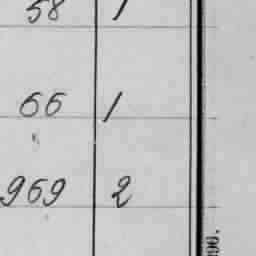 58 1
66 1
969 2